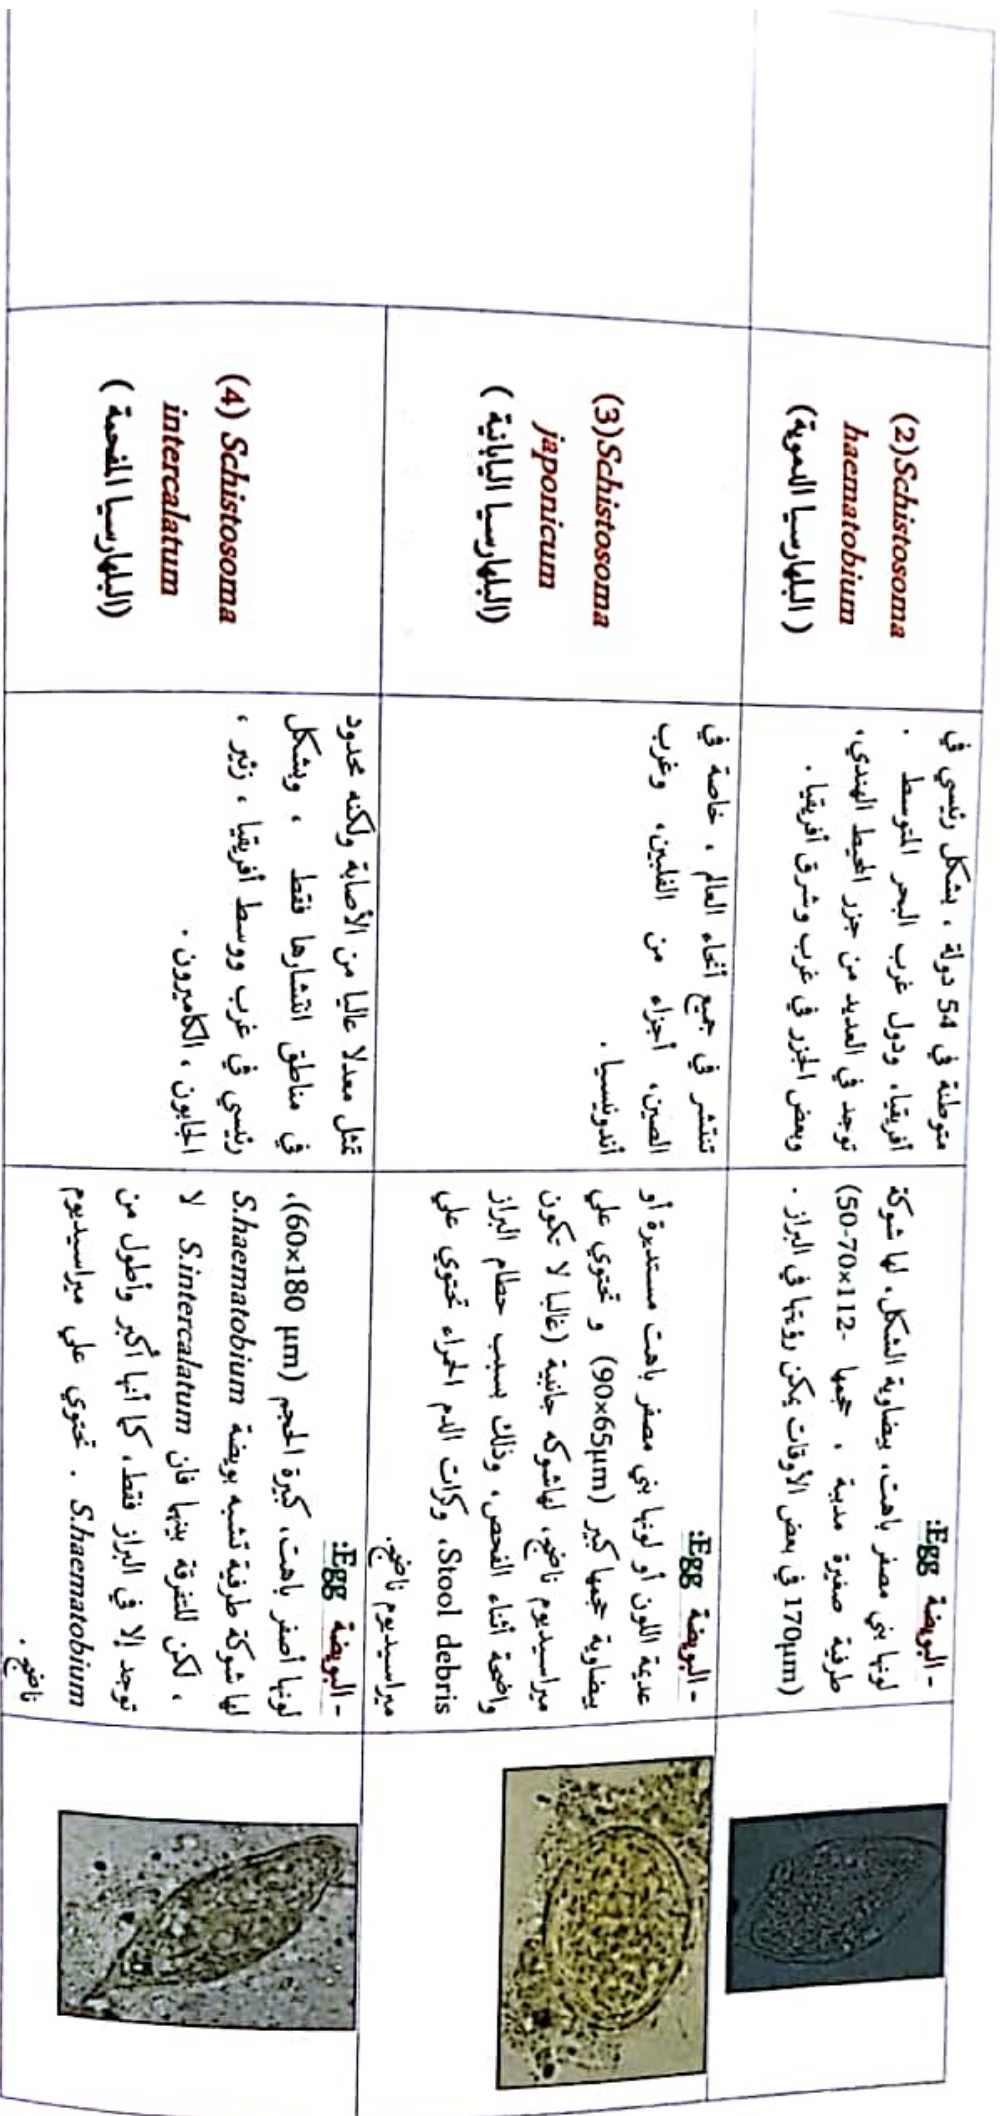 (2)Schistosoma
haematobium
( البلهارسيا الدموية)
متوطنة في 54 دولة ، بشكل رئيسي في
أفريقيا، ودول غرب البحر المتوسط .
توجد في العديد من جزر المحيط الهندي،
وبعض الجزر في غرب وشرق أفريقيا .
- البويضة Egg:
لونها بني مصفر باهت، بيضاوية الشكل، لها شوكة
طرفية صغيرة مدببة ، حجمها (50-70x112-
170µm) في بعض الأوقات يمكن رؤيتها في البراز .
(3)Schistosoma
japonicum
(البلهارسيا اليابانية )
تنتشر في جميع أنحاء العالم ، خاصة في
الصين، أجزاء من الفلبين، وغرب
أندونيسيا .
- البويضة Egg:
عديمة اللون أو لونها بني مصفر باهت مستديرة أو
بيضاوية حجمها كبير (90x65µm) و تحتوي علي
ميراسيديوم ناضج، لهاشوكه جانبية (غالبا لا تكون
واضحة أثناء الفحص، وذلك بسبب حطام البراز
Stool debris، وكرات الدم الحمراء تحتوي علي
ميراسيديوم ناضج.
(4) Schistosoma
intercalatum
(البلهارسيا المقحمة )
تمثل معدلا عاليا من الأصابة ولكنه محدود
في مناطق انتشارها فقط ، وبشكل
رئيسي في غرب ووسط أفريقيا ، زئير ،
الجابون ، الكاميرون .
- البويضة Egg:
لونها أصفر باهت، كبيرة الحجم (60x180 µm)،
لها شوكة طرفية تشبه بويضة S.haematobium
، لكن للتفرقة بينهما فان S.intercalatum لا
توجد إلا في البراز فقط، كما أنها أكبر وأطول من
S.haematobium . تحتوي علي ميراسيديوم
ناضج .